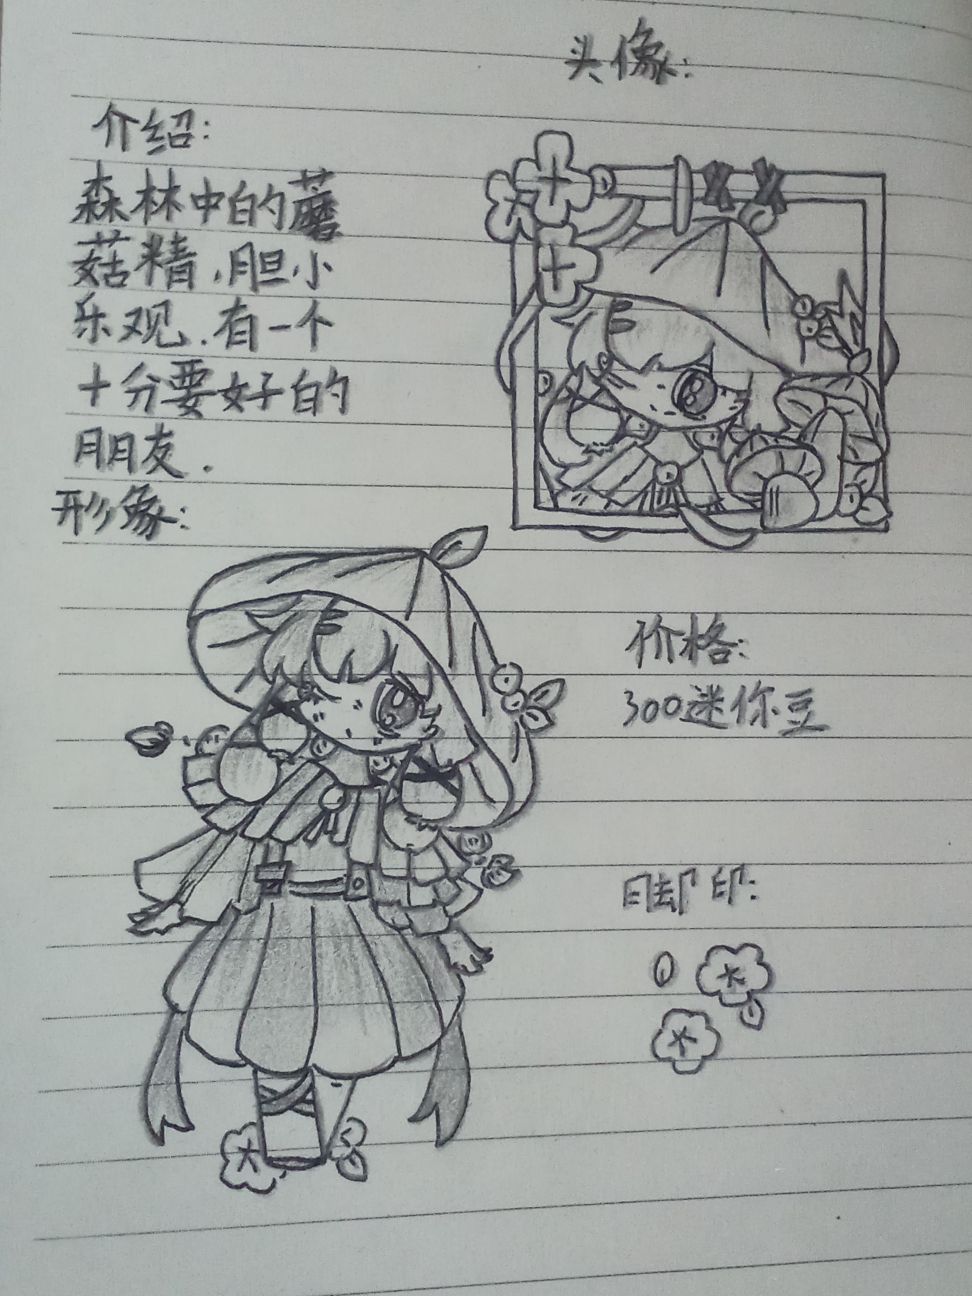 头像:
介绍:
森林中的蘑
菇精,胆小
乐观.有一个
十分要好的
朋友.
形象:
价格:
300迷你豆
脚印: